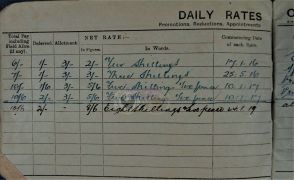 DAILY RATES
Promotions, Reductions, Appointments
Total Pay including Field Allce (if any). Deferred. Allotment NET RATE:— In Figures. In Words. Commencing Date of each Rate.
6/- 1/- 3/- 2/- Two Shillings 17.1.16
7/- 1/- 3/- 3/- Three Shillings 25.5.16
10/- 1/6 3/- 5/6 Five Shillings Sixpence 10.1.17
10/6 2/- 3/- 5/6 Five Shillings Sixpence 10.1.17
10/6 2/- - 8/6 Eight shillings & sixpence 1.19